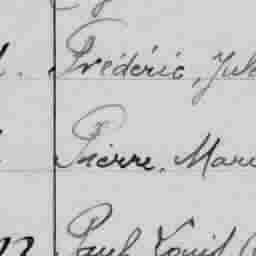 Frédéric, Jul
Pierre, Mar
Paul Louis